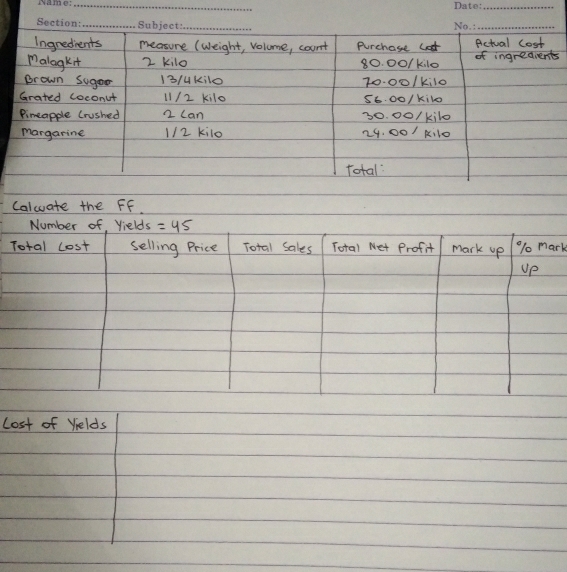 Name: Date:
Section: Subject: No.:
Ingredients Measure (Weight, Volume, count Purchase Cost Actual Cost of ingredients
Malagkit 2 kilo 80.00/kilo
Brown Sugar 1 3/4 kilo 70.00/kilo
Grated Coconut 1 1/2 kilo 56.00/kilo
Pineapple Crushed 2 Can 30.00/kilo
Margarine 1/2 kilo 24.00/kilo
Total:
Calcuate the FF.
Number of Yields = 45
Total Cost Selling Price Total Sales Total Net Profit Mark up % Mark up
Cost of Yields